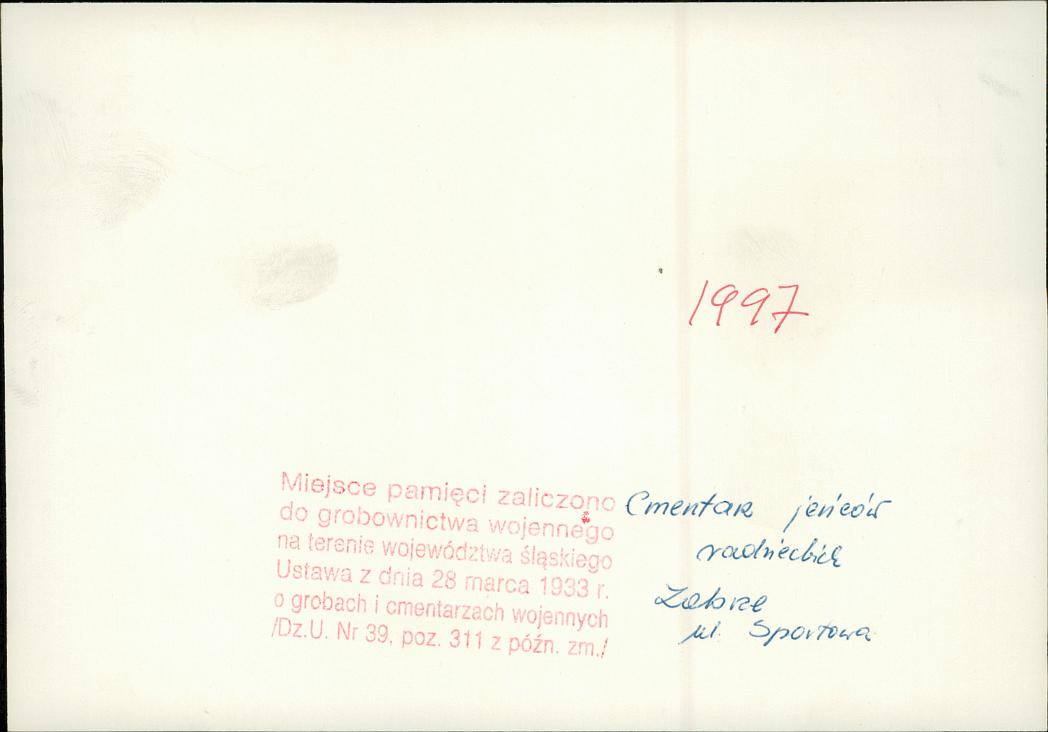 1997
Miejsce pamięci zaliczono
do grobownictwa wojennego
na terenie województwa śląskiego
Ustawa z dnia 28 marca 1933 r.
o grobach i cmentarzach wojennych
/Dz.U. Nr 39, poz. 311 z późn. zm./
Cmentarz jeńców
radzieckich
Zabrze
ul. Sportowa